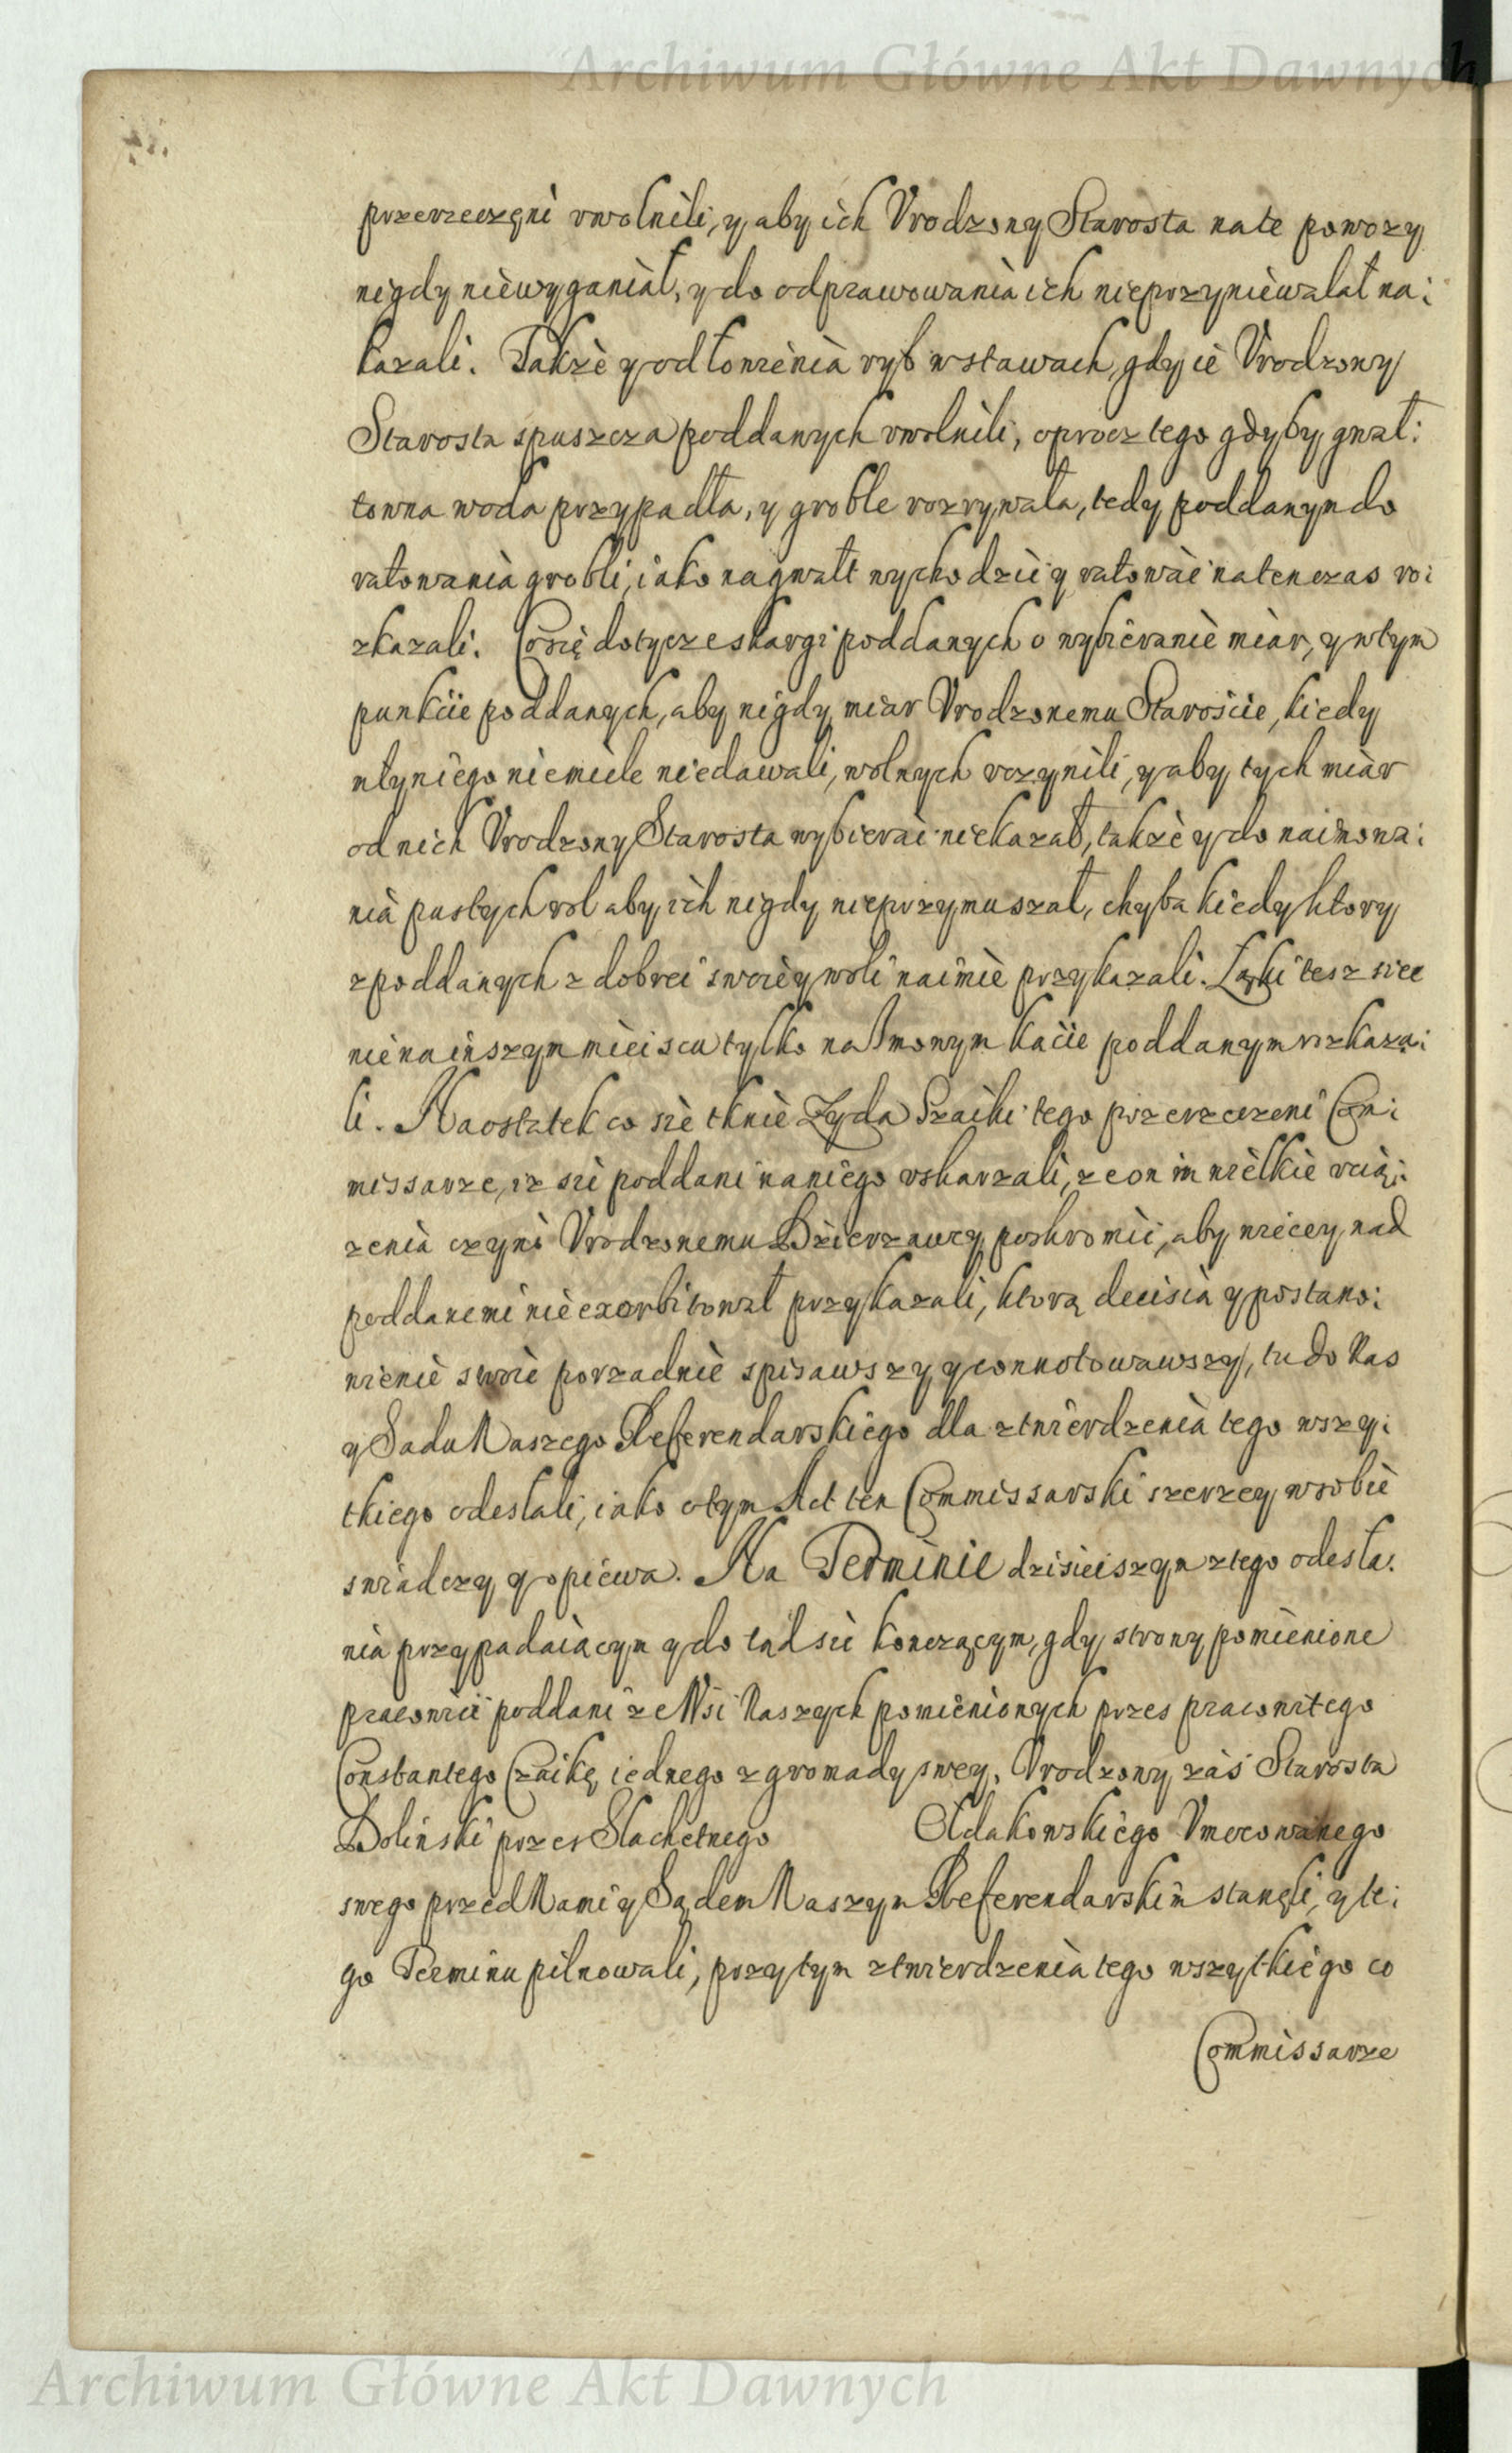 Archiwum Główne Akt Dawnych
przerzeczęni vwolnili, y aby ich Vrodzony Starosta na te powozy
nigdy niewyganiał, y do odprawowania ich nieprzyniewalał na:
kazali. Także y od łowienia ryb w stawach, gdy ie Vrodzony
Starosta spuszcza poddanych vwolnili, oprocz tego gdyby gwał:
towna woda przypadła, y groble rozrywała, tedy poddanym do
ratowania grobli, iako na gwałt wychodzić y ratować natenczas ro:
zkazali. Co się dotycze skargi poddanych o wybieranie miar, y wtym
punkcie poddanych, aby nigdy miar Vrodzonemu Staroście, kiedy
młyn iego niemiele niedawali, wolnych vczynili, y aby tych miar
od nich Vrodzony Starosta wybierać niekazał, także y do naimowa:
nia pustych rol aby ich nigdy nieprzymuszał, chyba kiedy ktory
z poddanych z dobrei swoiey woli naimie przykazali. Łąki tesz siec
nie na inszym mieiscu tylko na kącie poddanym rozkaza:
li. Na ostatek co sie tknie Zyda Szaiki tego przerzeczeni Com:
missarze, iz sie poddani na niego vskarzali, ze on im wielkie vcią:
zenia czyni Vrodzonemu Dzierzawcy poskromić, aby wiecey nad
poddanemi nieexorbitował przykazali, ktorą decisia y postano:
wienie swoie porzadnie spisawszy y connotowawszy, tu do Nas
y Sadu Naszego Referendarskiego dla ztwierdzenia tego wszy:
tkiego odesłali, iako o tym Act ten Commissarski szerzey w sobie
swiadczy y opiewa. Na Terminie dzisieiszym z tego odesła:
nia przypadaiacym y do tąd sie konczącym, gdy strony pomienione
pracowici poddani ze Wsi Naszych pomienionych przes pracowitego
Constantego Czaikę iednego z gromady swey, Vrodzony zaś Starosta
Dolinski przes Slachetnego Ołdakowskiego Vmocowanego
swego przed Nami y Sądem Naszym Referendarskim stanęli, y te:
go Terminu pilnowali, przy tym ztwierdzenia tego wszytkiego co
Commissarze
Archiwum Główne Akt Dawnych